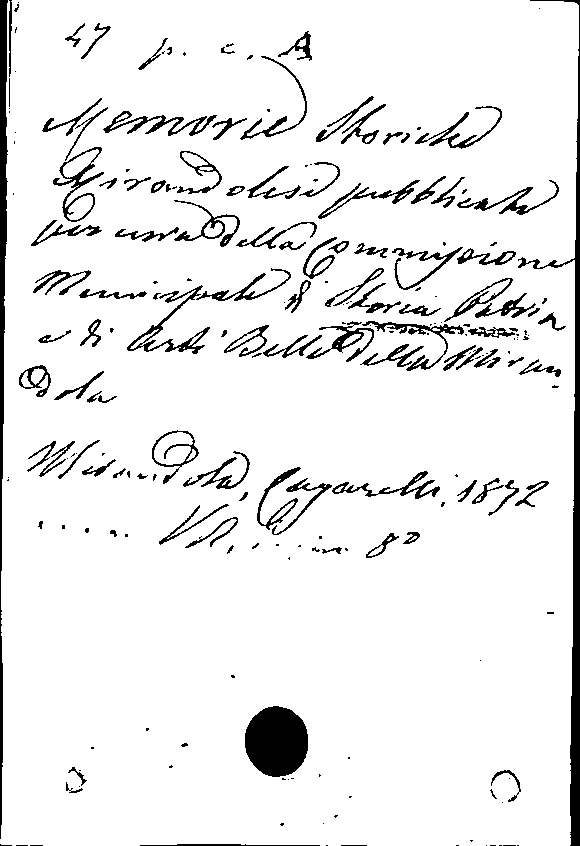 47 p. c. A
Memorie Storiche
Mirandolesi pubblicate
per cura della Commissione
Municipale di Storia Patria
e di Arti Belle della Miran-
dola
Mirandola, Cagarelli, 1872
..... Vol. .... in 8º